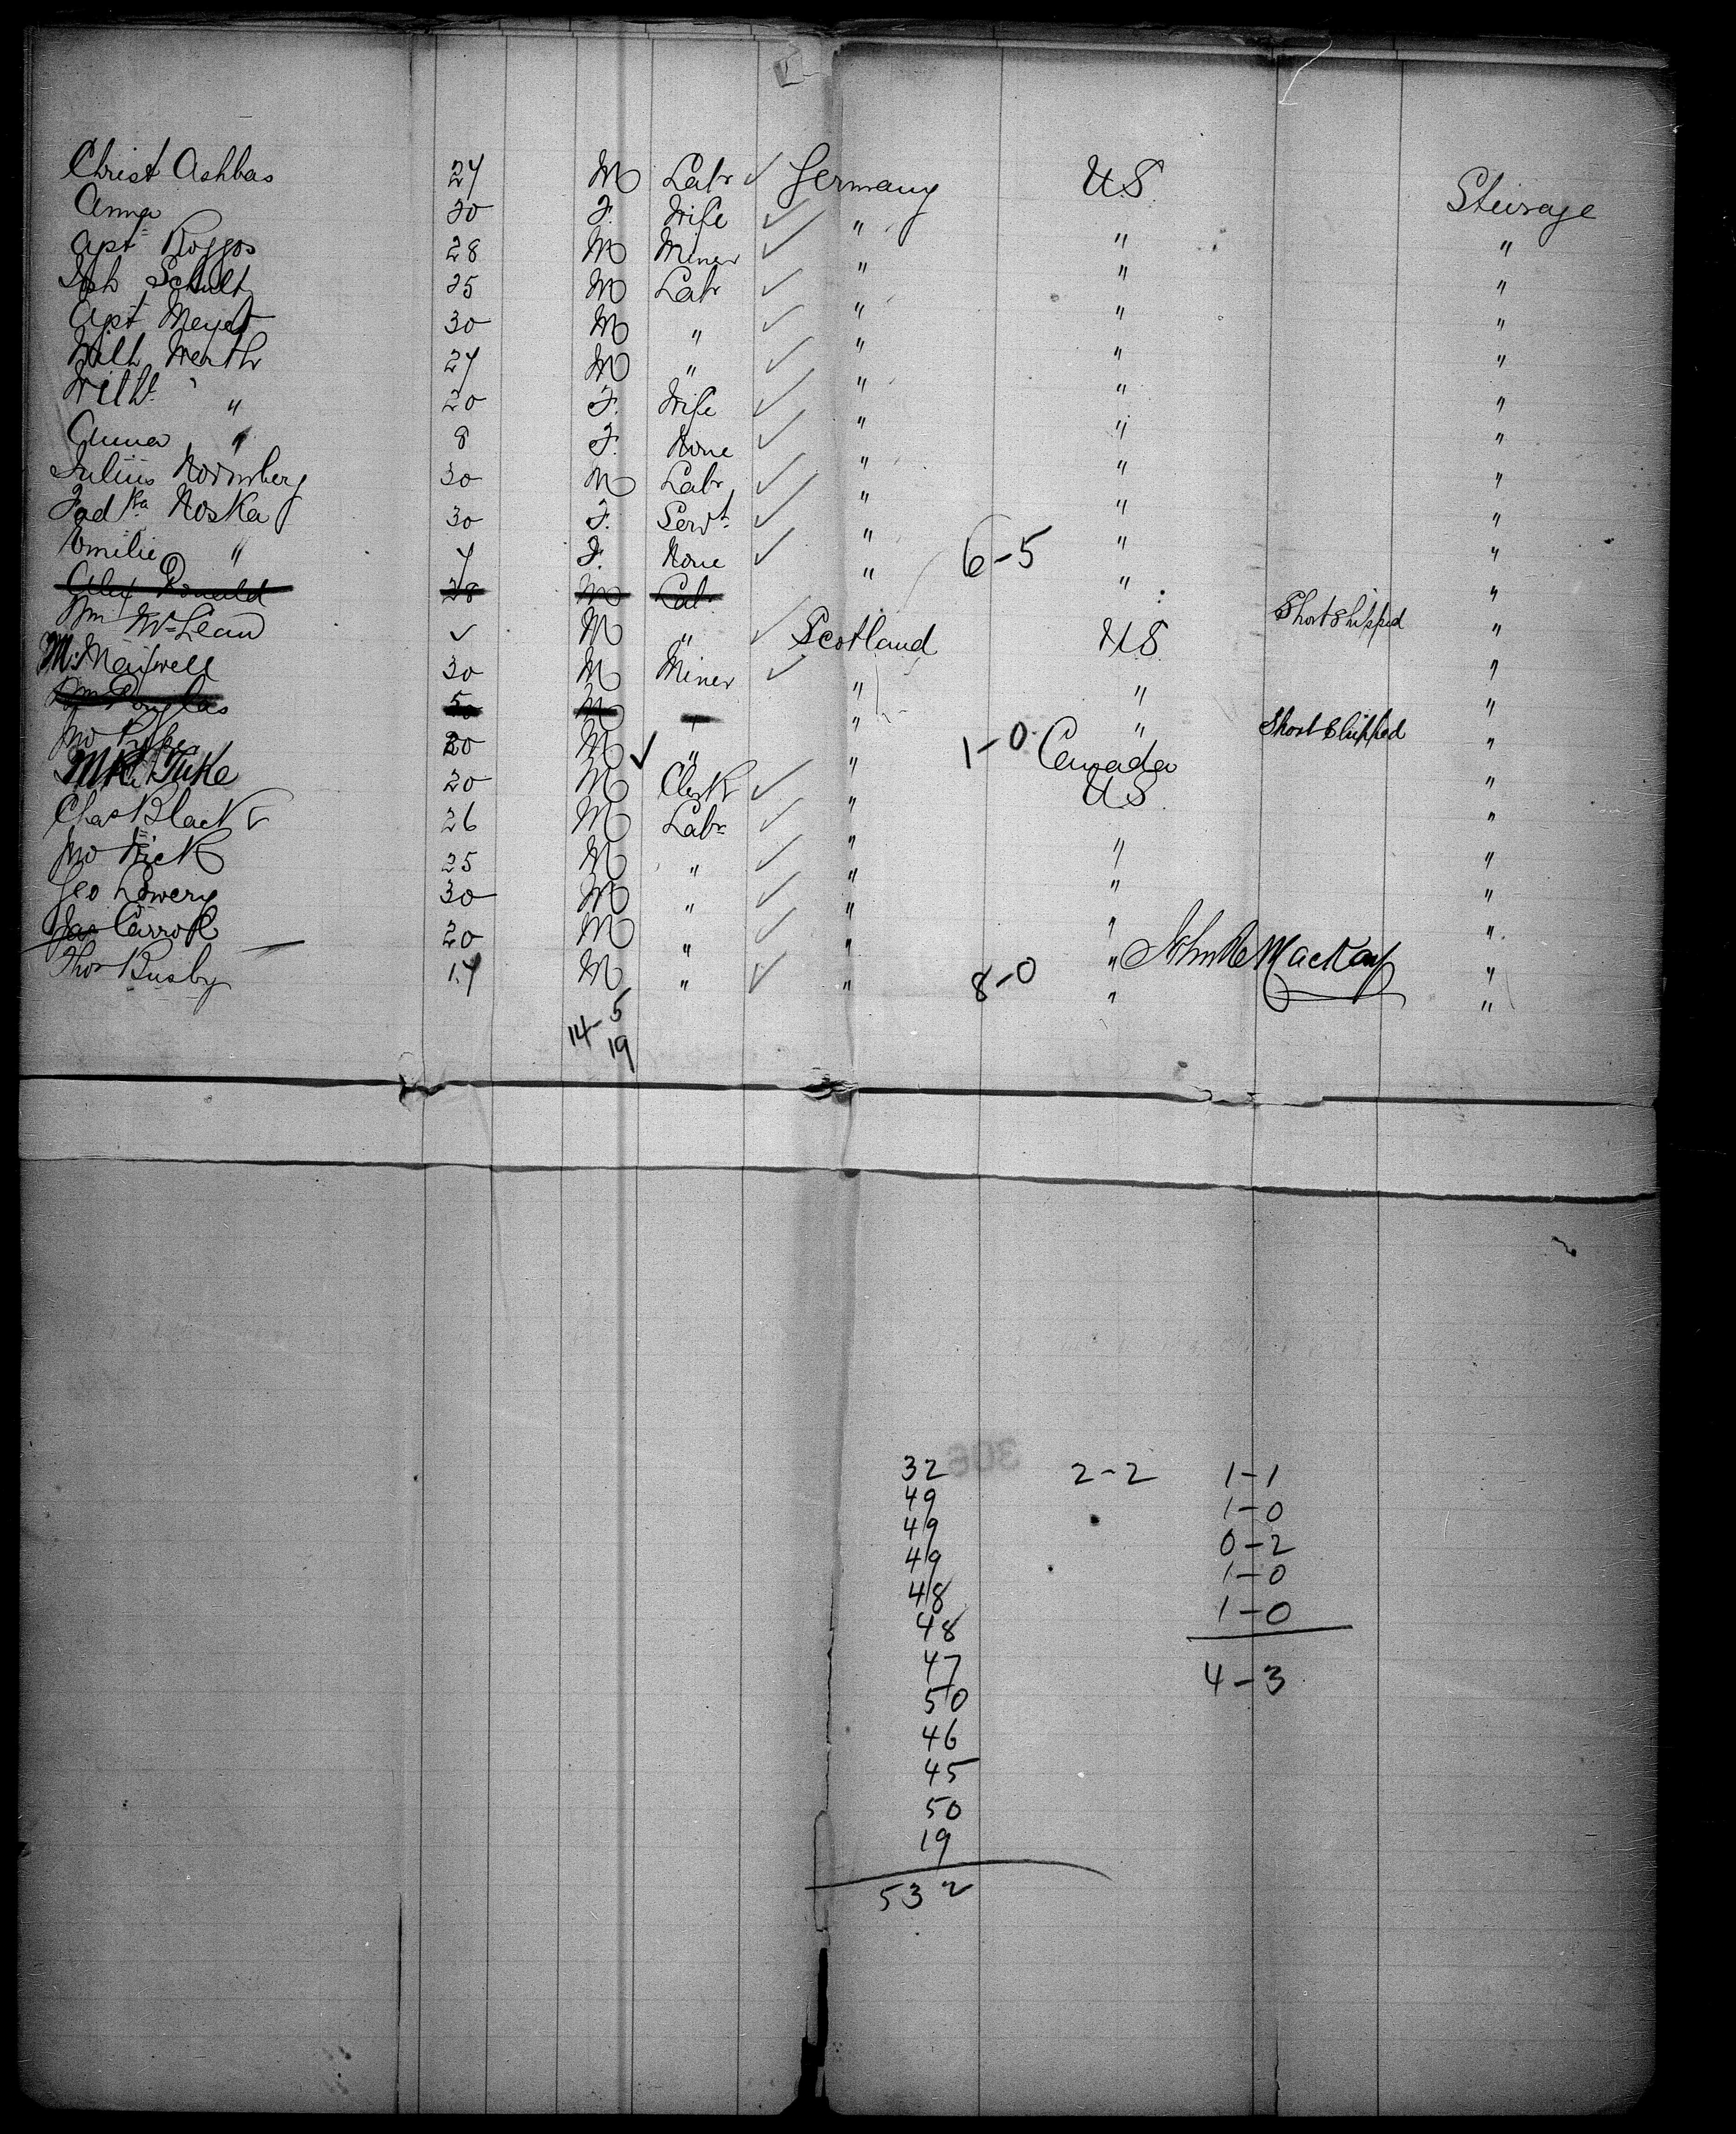 Christ Ashbas 27 M Labr ✓ Germany US Steerage
Anna 20 F. Wife ✓ " " "
Apt Roggos 28 M Miner ✓ " " "
Joh Schult 25 M Labr ✓ " " "
Apt Meyer 30 M " ✓ " " "
Wilh Werth 27 M " ✓ " " "
Wilh " 20 F. Wife ✓ " " "
Anna " 8 F. None ✓ " " "
Julius 30 M Labr ✓ " " "
Fadka Noska 30 F. Servt ✓ " " "
Emilie " 4 F. None ✓ " 6-5 " "
Alex Donald 28 M Labr Short Shipped "
Wm McLean ✓ M " ✓ Scotland US "
M. Maxwell 30 M Miner ✓ " " "
Wm Douglas 50 M " " " Short Shipped "
Jno 20 M ✓ " " 1-0 Canada "
Tuke 20 M Clerk ✓ " US "
Chas Black 26 M Labr ✓ " " "
Jno Kick 25 M " ✓ " " "
Geo Lowery 30 M " ✓ " " "
Jas Carroll 20 M " ✓ " " John Mackay "
Thos Busby 17 M " ✓ " 8-0 " "
14-5
19
32 2-2 1-1
49 1-0
49 0-2
49 1-0
48 1-0
48
47 4-3
50
46
45
50
19
532